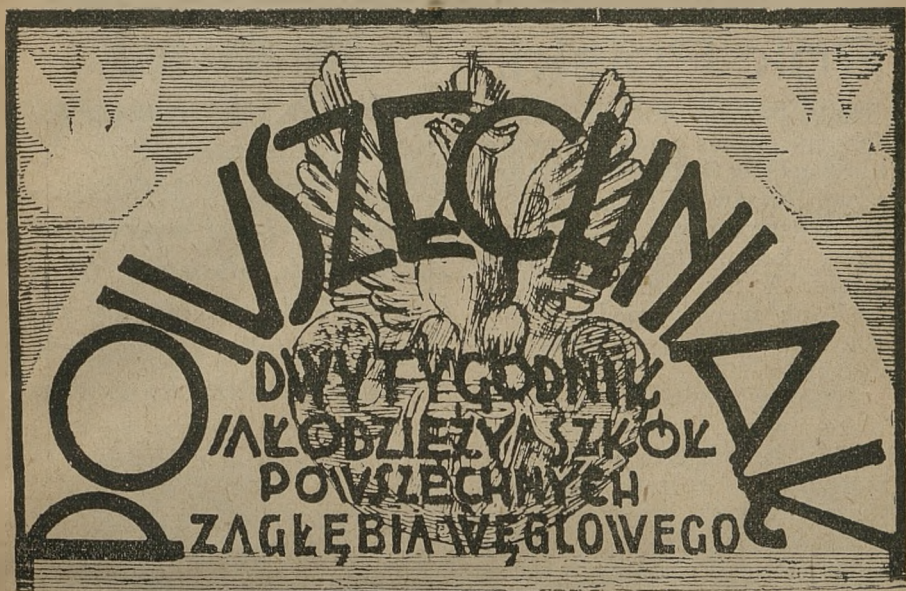 POWSZECHNIAK
DWUTYGODNIK
MŁODZIEŻY SZKÓŁ
POWSZECHNYCH
ZAGŁĘBIA WĘGLOWEGO